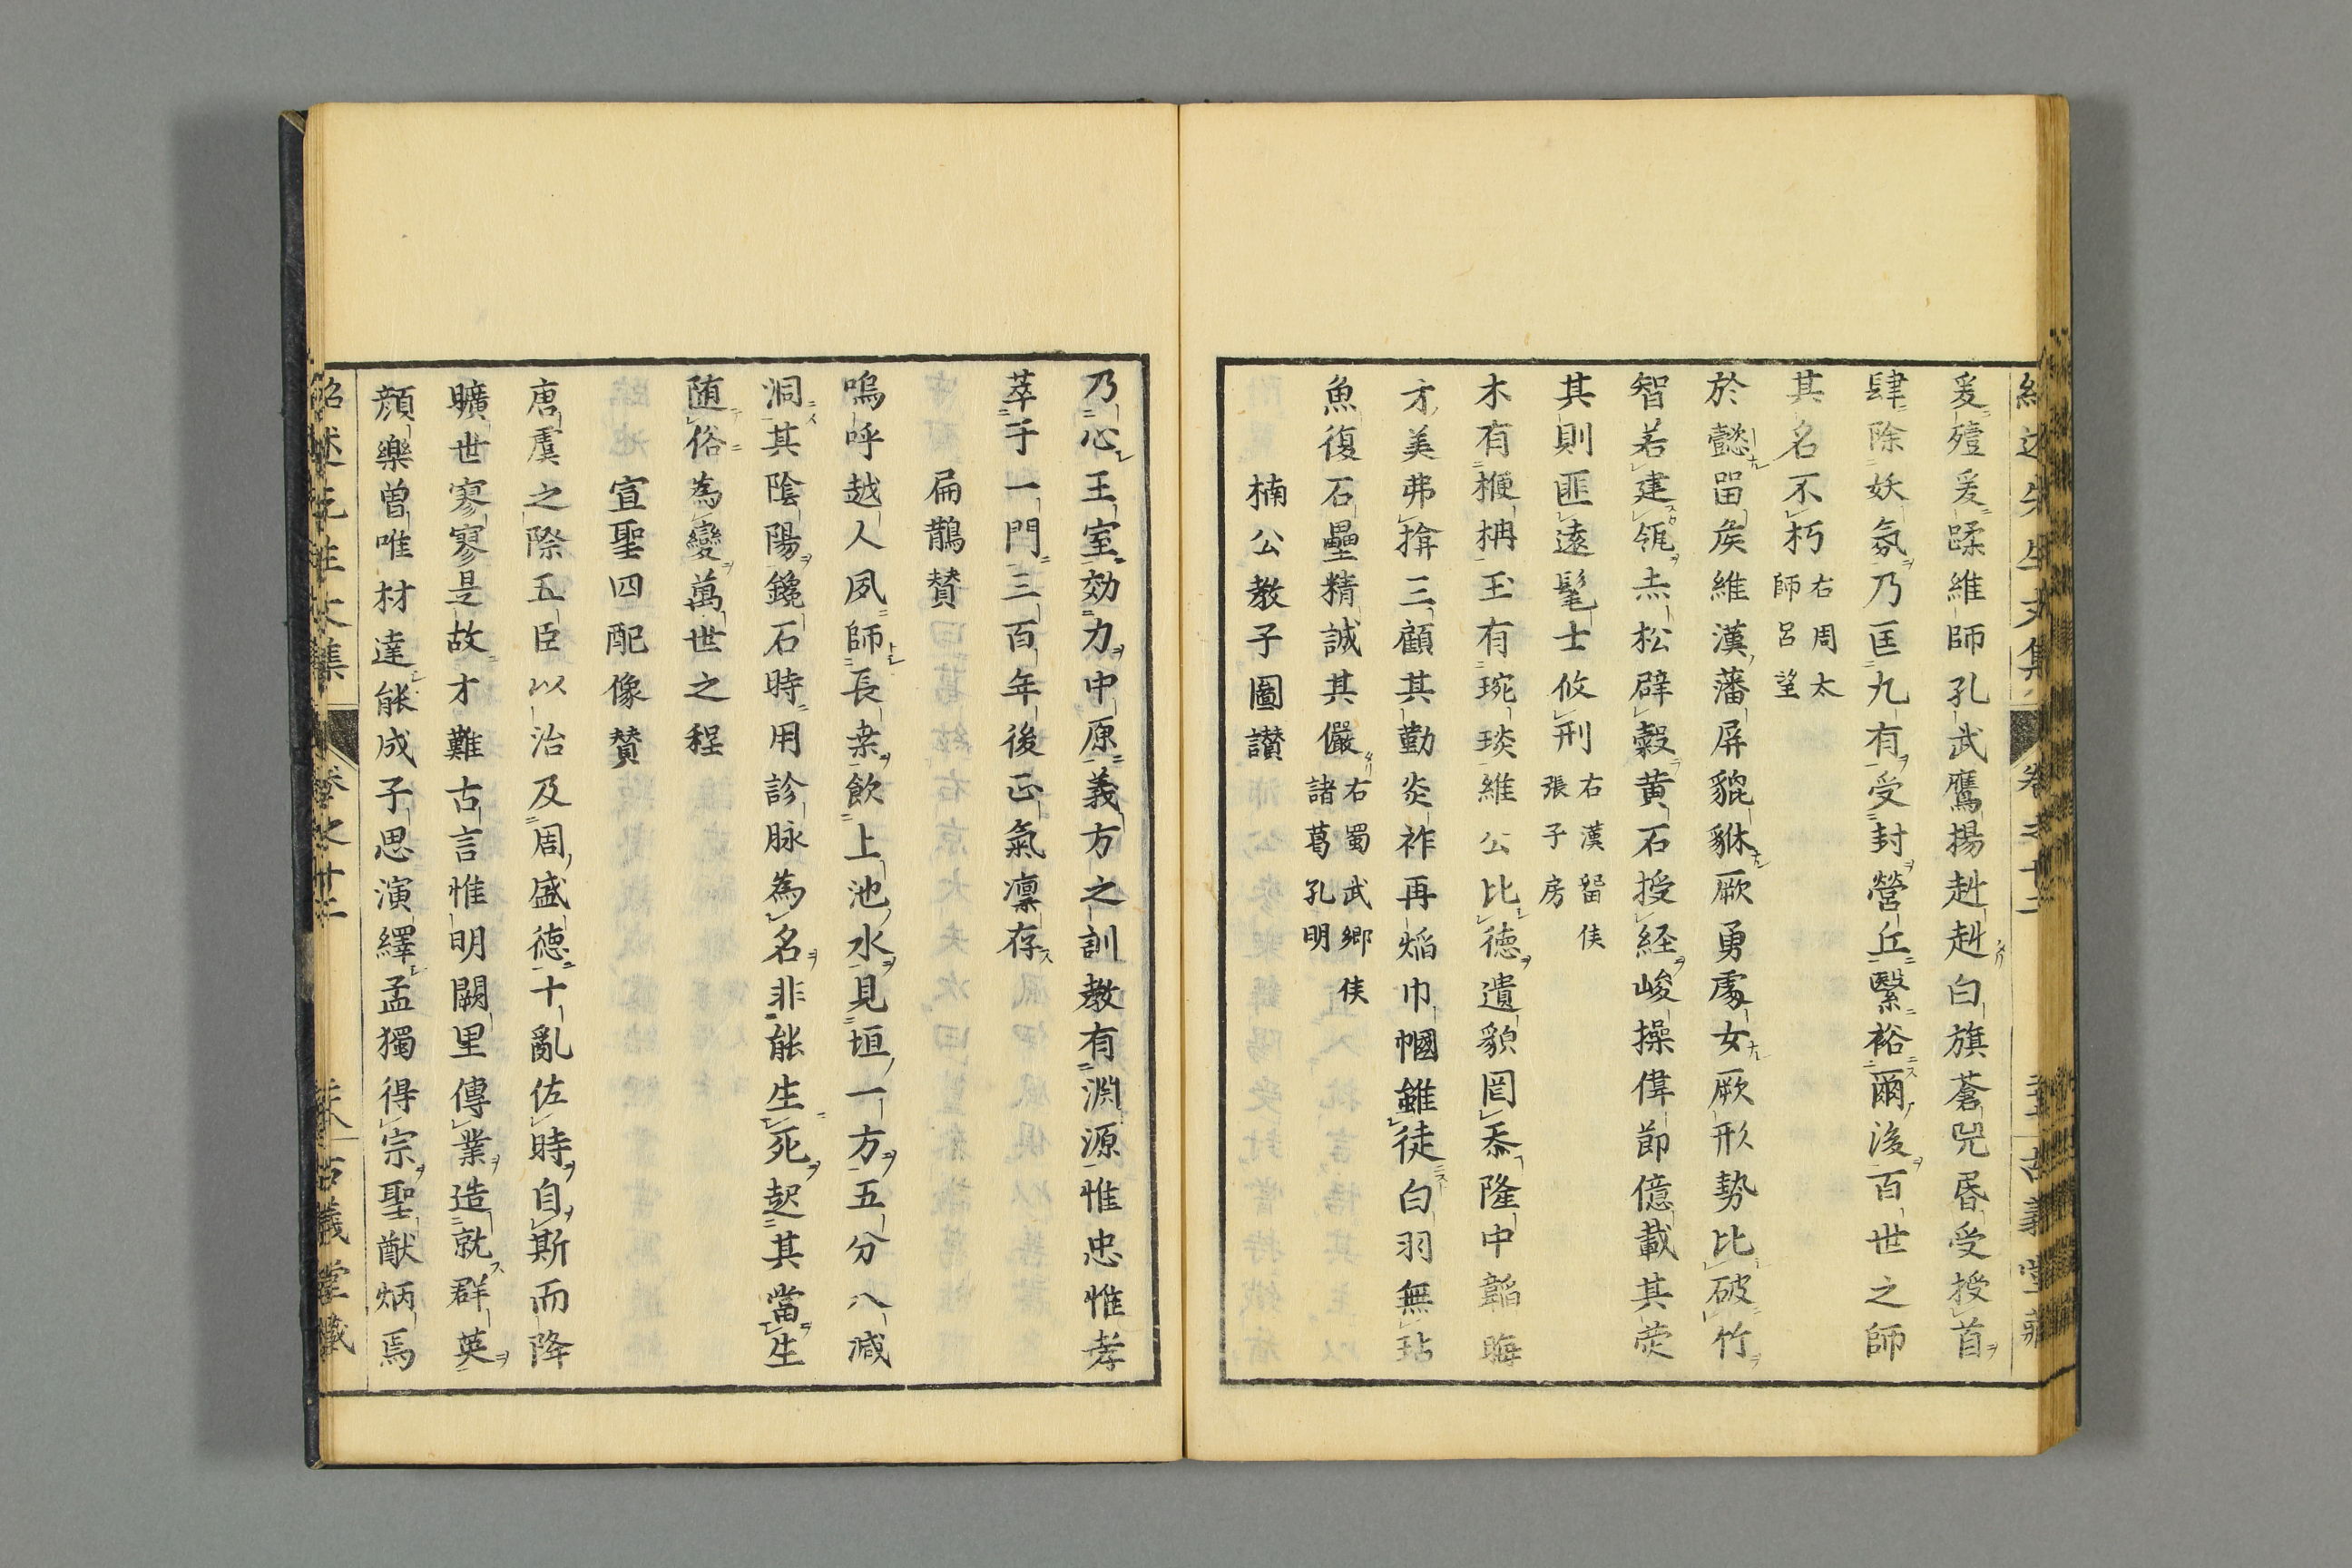 爰殪爰蹂維師孔武鷹揚赳赳白旗蒼兕昬受授首
肆除妖氛乃匡九有受封營丘繄裕爾後百世之師
其名不朽右周太師呂望
於懿畱矦維漢藩屏貔貅厥勇處女厥形勢比破竹
智若建瓴赤松辟穀黄石授経峻操偉節億載其熒
其則匪遠髦士攸刑右漢畱侯張子房
木有楩枏玉有琬琰維公比徳遺貌罔忝隆中韜晦
才美弗揜三顧其勤炎祚再焰巾幗雖徒白羽無玷
魚復石壘精誠其儼右蜀武郷侯諸葛孔明
楠公教子圖讃
乃心王室効力中原義方之訓教有淵源惟忠惟孝
萃于一門三百年後正氣凛存
扁鵲賛
嗚呼越人夙師長桒飲上池水見垣一方五分八减
洞其陰陽鑱石時用診脉為名非能生死起其當生
随俗為變萬世之程
宣聖四配像賛
唐虞之際五臣以治及周盛徳十亂佐時自斯而降
曠世寥寥是故才難古言惟明闕里傳業造就群英
顔樂曽唯材達能成子思演繹孟獨得宗聖猷炳焉
紹述先生文集 卷之廿二 古義堂藏